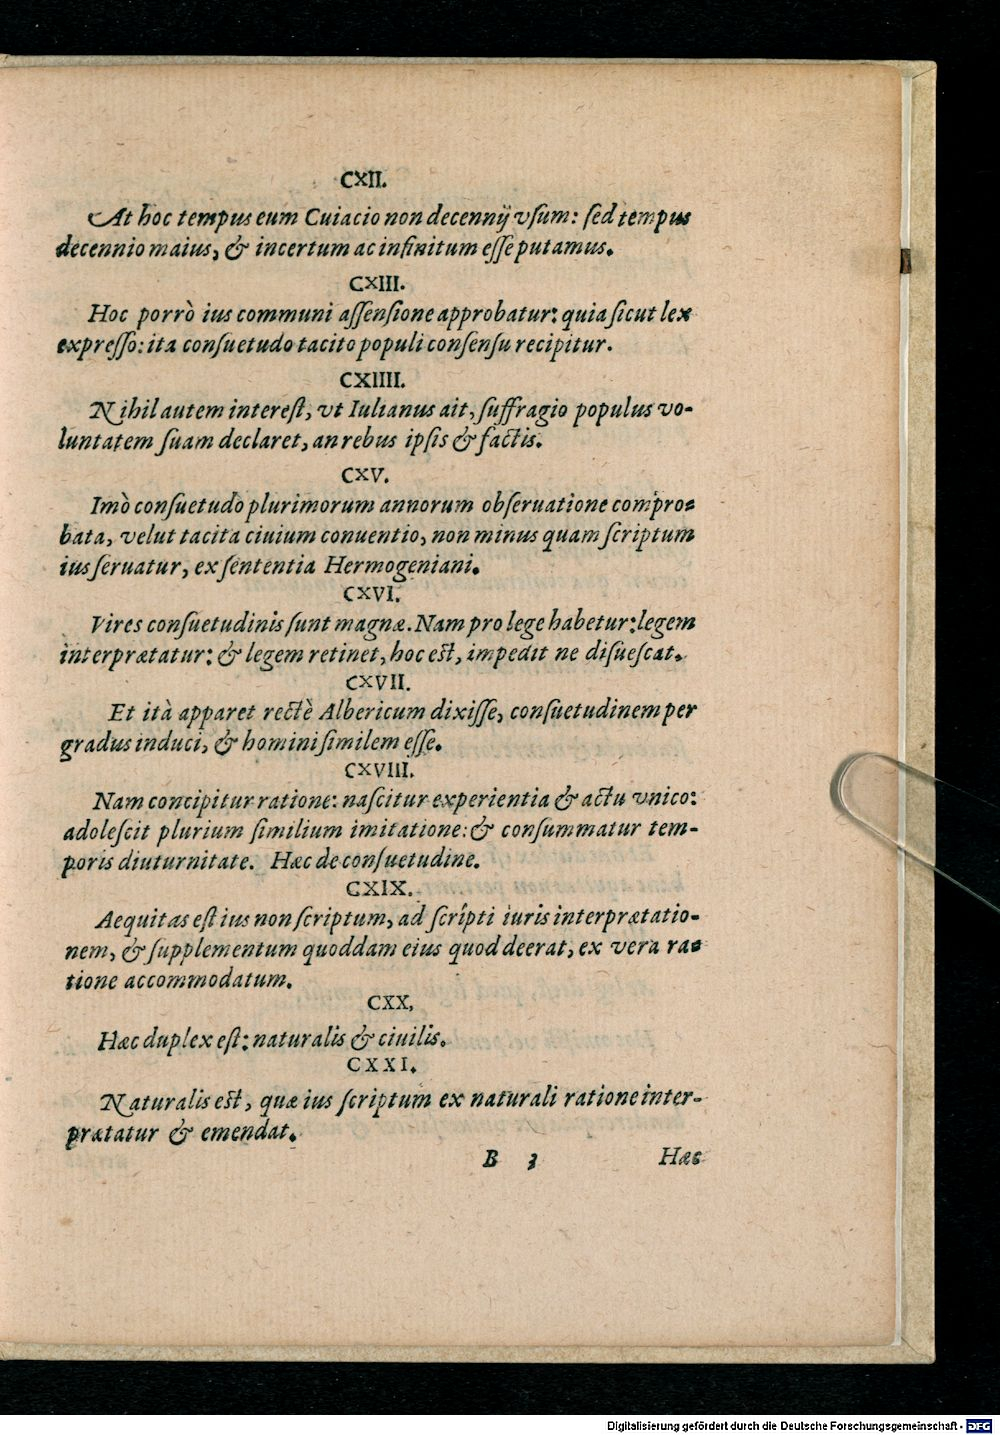 CXII.
At hoc tempus eum Cuiacio non decennij vſum: ſed tempus
decennio maius, & incertum ac infinitum eſſe putamus.
CXIII.
Hoc porrò ius communi aſſenſione approbatur: quia ſicut lex
expreſſo: ita conſuetudo tacito populi conſenſu recipitur.
CXIIII.
Nihil autem intereſt, vt Iulianus ait, ſuffragio populus vo-
luntatem ſuam declaret, an rebus ipſis & factis.
CXV.
Imò conſuetudo plurimorum annorum obſeruatione compro-
bata, velut tacita ciuium conuentio, non minus quam ſcriptum
ius ſeruatur, ex ſententia Hermogeniani.
CXVI.
Vires conſuetudinis ſunt magnæ. Nam pro lege habetur: legem
interprætatur: & legem retinet, hoc eſt, impedit ne diſueſcat.
CXVII.
Et ità apparet rectè Albericum dixiſſe, conſuetudinem per
gradus induci, & homini ſimilem eſſe.
CXVIII.
Nam concipitur ratione: naſcitur experientia & actu vnico:
adoleſcit plurium ſimilium imitatione: & conſummatur tem-
poris diuturnitate. Hæc de conſuetudine.
CXIX.
Aequitas eſt ius non ſcriptum, ad ſcripti iuris interprætatio-
nem, & ſupplementum quoddam eius quod deerat, ex vera ra-
tione accommodatum.
CXX,
Hæc duplex eſt: naturalis & ciuilis.
CXXI.
Naturalis eſt, quæ ius ſcriptum ex naturali ratione inter-
prætatur & emendat.
B 3 Hæc
Digitalisierung gefördert durch die Deutsche Forschungsgemeinschaft - DFG